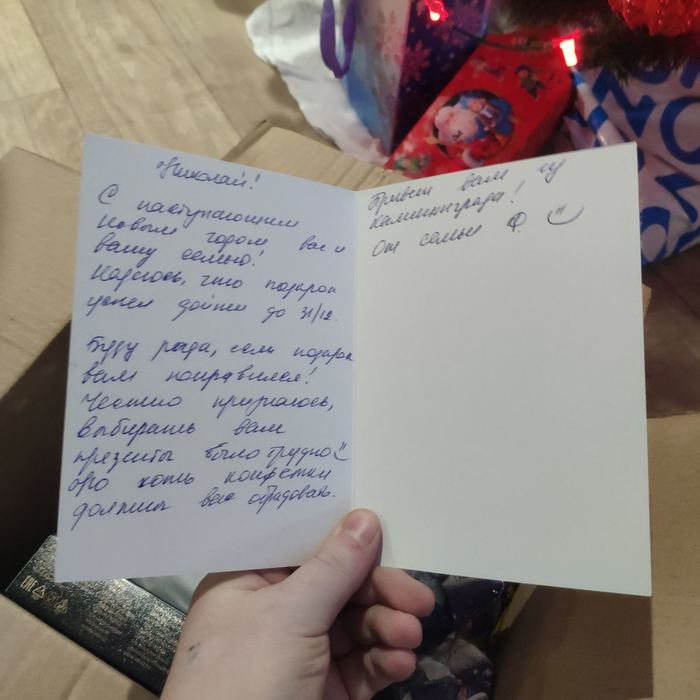 Николай!
С наступающим
Новым годом вас и
вашу семью!
Надеюсь, что подарок
успел дойти до 31/12.
Буду рада, если подарок
вам понравился!
Честно признаюсь,
выбирать вам
презенты было трудно
хоть конфетки
должны вас обрадовать.
Привет вам из
Калининграда!
От семьи Ф.
EAC